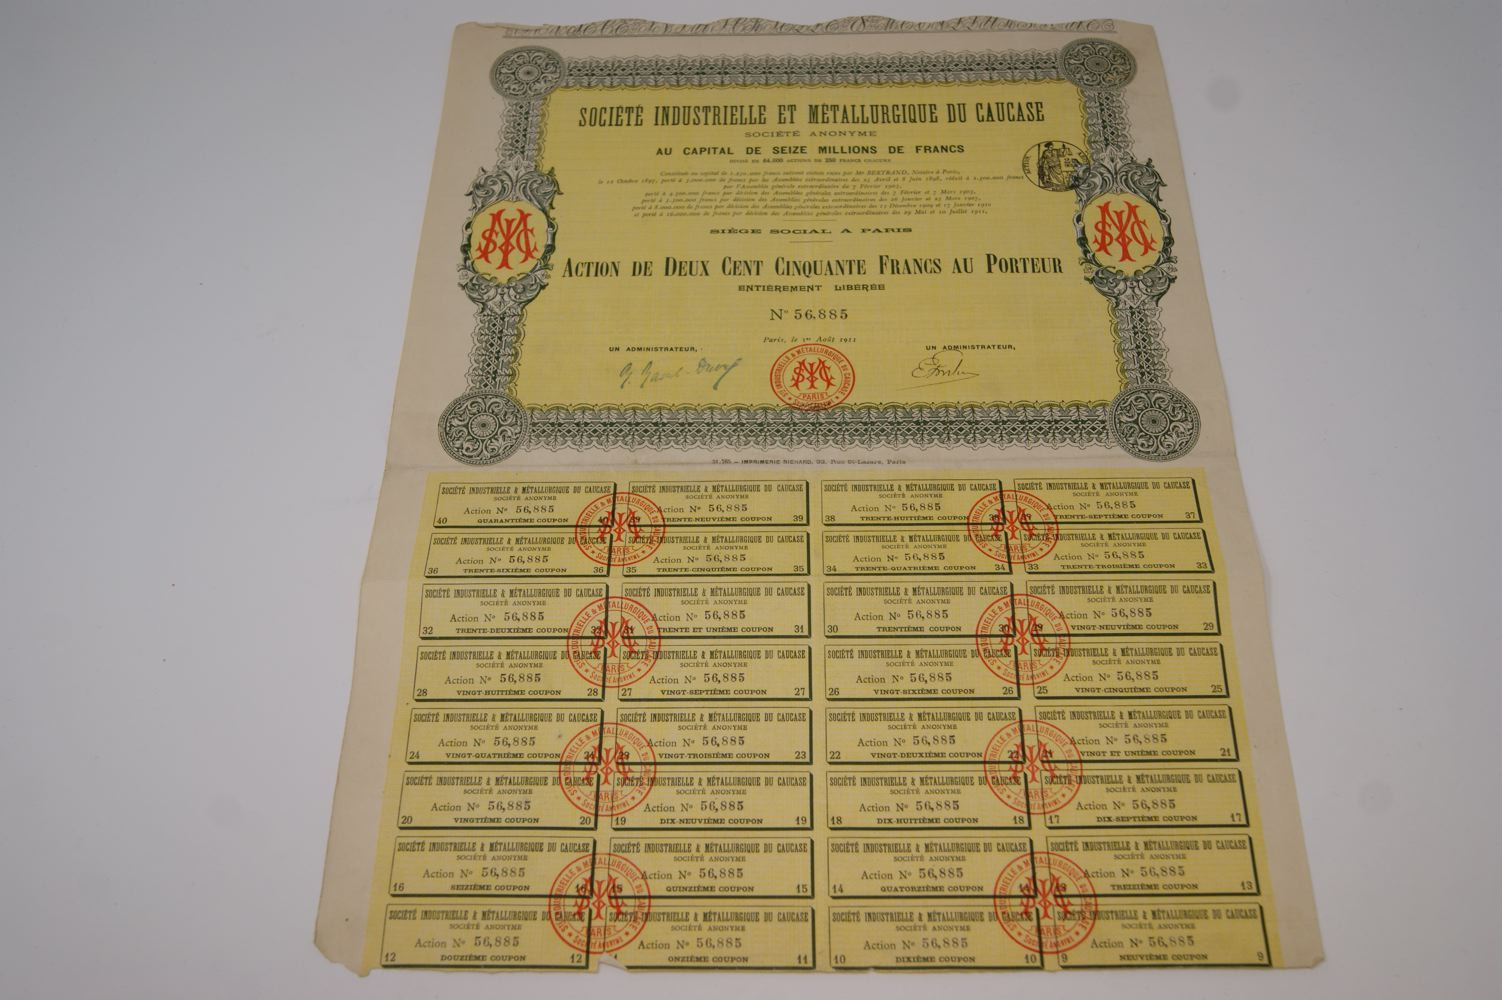 SOCIÉTÉ INDUSTRIELLE ET MÉTALLURGIQUE DU CAUCASE
SOCIÉTÉ ANONYME
AU CAPITAL DE SEIZE MILLIONS DE FRANCS
DIVISÉ EN 64.000 ACTIONS DE 250 FRANCS CHACUNE
Constituée au capital de 1.250.000 francs suivant statuts reçus par Me BERTRAND, Notaire à Paris,
le 12 Octobre 1897, porté à 3.000.000 de francs par les Assemblées extraordinaires des 25 Avril et 8 Juin 1898, réduit à 1.500.000 francs
par l'Assemblée générale extraordinaire du 7 Février 1903,
porté à 4.500.000 francs par décision des Assemblées générales extraordinaires des 7 Février et 7 Mars 1903,
porté à 5.500.000 francs par décision des Assemblées générales extraordinaires des 26 Janvier et 23 Mars 1907,
porté à 8.000.000 de francs par décision des Assemblées générales extraordinaires des 17 Décembre 1909 et 17 Janvier 1910
et porté à 16.000.000 de francs par décision des Assemblées générales extraordinaires des 29 Mai et 10 Juillet 1911.
SIÈGE SOCIAL A PARIS
ACTION DE DEUX CENT CINQUANTE FRANCS AU PORTEUR
ENTIÈREMENT LIBÉRÉE
No 56,885
Paris, le 1er Août 1911
UN ADMINISTRATEUR, UN ADMINISTRATEUR,
Sté INDUSTRIELLE & MÉTALLURGIQUE DU CAUCASE
PARIS
IMPRIMERIE RICHARD, Rue St-Lazare, Paris
SOCIÉTÉ INDUSTRIELLE & MÉTALLURGIQUE DU CAUCASE
SOCIÉTÉ ANONYME
Action No 56,885
40 QUARANTIÈME COUPON 40
SOCIÉTÉ INDUSTRIELLE & MÉTALLURGIQUE DU CAUCASE
SOCIÉTÉ ANONYME
Action No 56,885
39 TRENTE-NEUVIÈME COUPON 39
SOCIÉTÉ INDUSTRIELLE & MÉTALLURGIQUE DU CAUCASE
SOCIÉTÉ ANONYME
Action No 56,885
38 TRENTE-HUITIÈME COUPON 38
SOCIÉTÉ INDUSTRIELLE & MÉTALLURGIQUE DU CAUCASE
SOCIÉTÉ ANONYME
Action No 56,885
TRENTE-SEPTIÈME COUPON 37
SOCIÉTÉ INDUSTRIELLE & MÉTALLURGIQUE DU CAUCASE
SOCIÉTÉ ANONYME
Action No 56,885
36 TRENTE-SIXIÈME COUPON 36
SOCIÉTÉ INDUSTRIELLE & MÉTALLURGIQUE DU CAUCASE
SOCIÉTÉ ANONYME
Action No 56,885
35 TRENTE-CINQUIÈME COUPON 35
SOCIÉTÉ INDUSTRIELLE & MÉTALLURGIQUE DU CAUCASE
SOCIÉTÉ ANONYME
Action No 56,885
34 TRENTE-QUATRIÈME COUPON 34
SOCIÉTÉ INDUSTRIELLE & MÉTALLURGIQUE DU CAUCASE
SOCIÉTÉ ANONYME
Action No 56,885
33 TRENTE-TROISIÈME COUPON 33
SOCIÉTÉ INDUSTRIELLE & MÉTALLURGIQUE DU CAUCASE
SOCIÉTÉ ANONYME
Action No 56,885
32 TRENTE-DEUXIÈME COUPON 32
SOCIÉTÉ INDUSTRIELLE & MÉTALLURGIQUE DU CAUCASE
SOCIÉTÉ ANONYME
Action No 56,885
31 TRENTE ET UNIÈME COUPON 31
SOCIÉTÉ INDUSTRIELLE & MÉTALLURGIQUE DU CAUCASE
SOCIÉTÉ ANONYME
Action No 56,885
30 TRENTIÈME COUPON 30
SOCIÉTÉ INDUSTRIELLE & MÉTALLURGIQUE DU CAUCASE
SOCIÉTÉ ANONYME
Action No 56,885
29 VINGT-NEUVIÈME COUPON 29
SOCIÉTÉ INDUSTRIELLE & MÉTALLURGIQUE DU CAUCASE
SOCIÉTÉ ANONYME
Action No 56,885
28 VINGT-HUITIÈME COUPON 28
SOCIÉTÉ INDUSTRIELLE & MÉTALLURGIQUE DU CAUCASE
SOCIÉTÉ ANONYME
Action No 56,885
27 VINGT-SEPTIÈME COUPON 27
SOCIÉTÉ INDUSTRIELLE & MÉTALLURGIQUE DU CAUCASE
SOCIÉTÉ ANONYME
Action No 56,885
26 VINGT-SIXIÈME COUPON 26
SOCIÉTÉ INDUSTRIELLE & MÉTALLURGIQUE DU CAUCASE
SOCIÉTÉ ANONYME
Action No 56,885
25 VINGT-CINQUIÈME COUPON 25
SOCIÉTÉ INDUSTRIELLE & MÉTALLURGIQUE DU CAUCASE
SOCIÉTÉ ANONYME
Action No 56,885
24 VINGT-QUATRIÈME COUPON 24
SOCIÉTÉ INDUSTRIELLE & MÉTALLURGIQUE DU CAUCASE
SOCIÉTÉ ANONYME
Action No 56,885
23 VINGT-TROISIÈME COUPON 23
SOCIÉTÉ INDUSTRIELLE & MÉTALLURGIQUE DU CAUCASE
SOCIÉTÉ ANONYME
Action No 56,885
22 VINGT-DEUXIÈME COUPON 22
SOCIÉTÉ INDUSTRIELLE & MÉTALLURGIQUE DU CAUCASE
SOCIÉTÉ ANONYME
Action No 56,885
VINGT ET UNIÈME COUPON 21
SOCIÉTÉ INDUSTRIELLE & MÉTALLURGIQUE DU CAUCASE
SOCIÉTÉ ANONYME
Action No 56,885
20 VINGTIÈME COUPON 20
SOCIÉTÉ INDUSTRIELLE & MÉTALLURGIQUE DU CAUCASE
SOCIÉTÉ ANONYME
Action No 56,885
19 DIX-NEUVIÈME COUPON 19
SOCIÉTÉ INDUSTRIELLE & MÉTALLURGIQUE DU CAUCASE
SOCIÉTÉ ANONYME
Action No 56,885
18 DIX-HUITIÈME COUPON 18
SOCIÉTÉ INDUSTRIELLE & MÉTALLURGIQUE DU CAUCASE
SOCIÉTÉ ANONYME
Action No 56,885
17 DIX-SEPTIÈME COUPON 17
SOCIÉTÉ INDUSTRIELLE & MÉTALLURGIQUE DU CAUCASE
SOCIÉTÉ ANONYME
Action No 56,885
16 SEIZIÈME COUPON 16
SOCIÉTÉ INDUSTRIELLE & MÉTALLURGIQUE DU CAUCASE
SOCIÉTÉ ANONYME
Action No 56,885
15 QUINZIÈME COUPON 15
SOCIÉTÉ INDUSTRIELLE & MÉTALLURGIQUE DU CAUCASE
SOCIÉTÉ ANONYME
Action No 56,885
14 QUATORZIÈME COUPON 14
SOCIÉTÉ INDUSTRIELLE & MÉTALLURGIQUE DU CAUCASE
SOCIÉTÉ ANONYME
Action No 56,885
13 TREIZIÈME COUPON 13
SOCIÉTÉ INDUSTRIELLE & MÉTALLURGIQUE DU CAUCASE
SOCIÉTÉ ANONYME
Action No 56,885
12 DOUZIÈME COUPON 12
SOCIÉTÉ INDUSTRIELLE & MÉTALLURGIQUE DU CAUCASE
SOCIÉTÉ ANONYME
Action No 56,885
ONZIÈME COUPON 11
SOCIÉTÉ INDUSTRIELLE & MÉTALLURGIQUE DU CAUCASE
SOCIÉTÉ ANONYME
Action No 56,885
10 DIXIÈME COUPON 10
SOCIÉTÉ INDUSTRIELLE & MÉTALLURGIQUE DU CAUCASE
SOCIÉTÉ ANONYME
Action No 56,885
9 NEUVIÈME COUPON 9